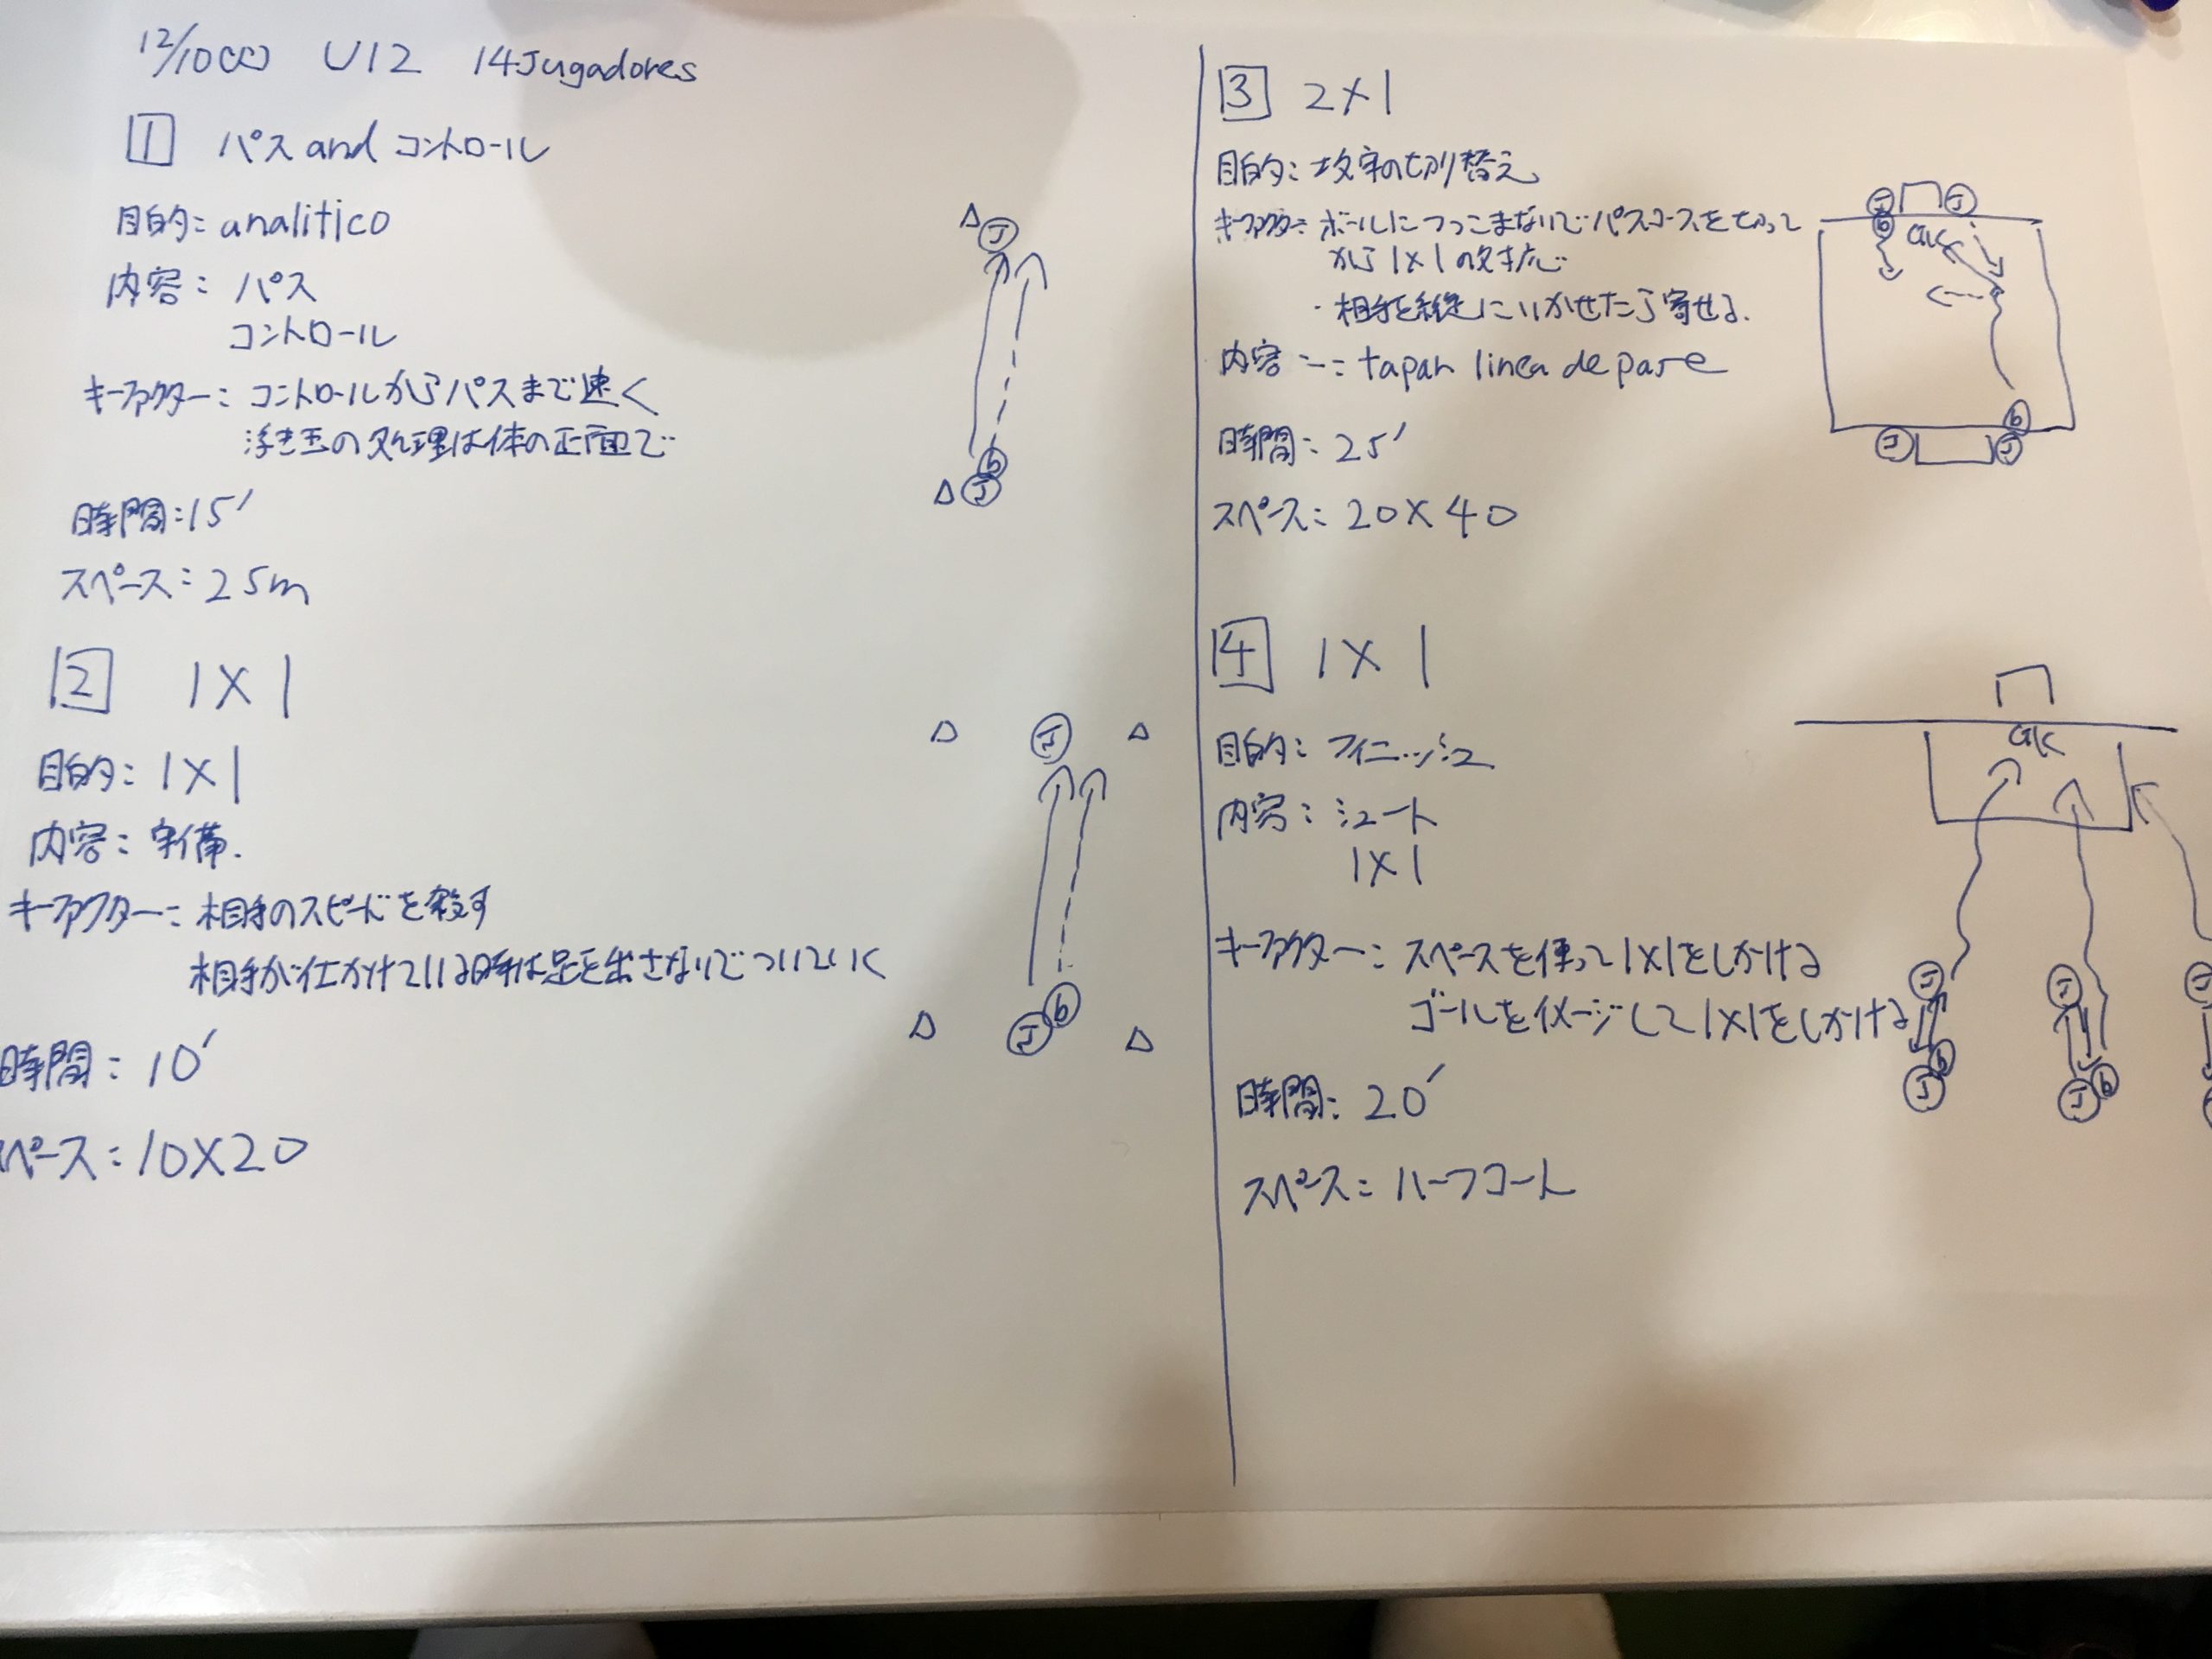 12/10(火) U12 14Jugadores
1 パス and コントロール
目的: analitico
内容: パス
コントロール
キーファクター: コントロールからパスまで速く
浮き玉の処理は体の正面で
時間: 15'
スペース: 25m
2 1×1
目的: 1×1
内容: 守備.
キーファクター: 相手のスピードを殺す
相手が仕かけている時は足を出さないでついていく
時間: 10'
スペース: 10×20
J
J b
J
J b
3 2×1
目的: 攻守の切り替え
キーファクター: ボールにつっこまないでパスコースを切って
から1×1の対応
・相手を縦にいかせたら寄せる.
内容: tapar linea de pase
時間: 25'
スペース: 20×40
J J
b GK
b
J J
4 1×1
目的: フィニッシュ
内容: シュート
1×1
キーファクター: スペースを使って1×1をしかける
ゴールをイメージして1×1をしかける
時間: 20'
スペース: ハーフコート
GK
J J J
b b
J J